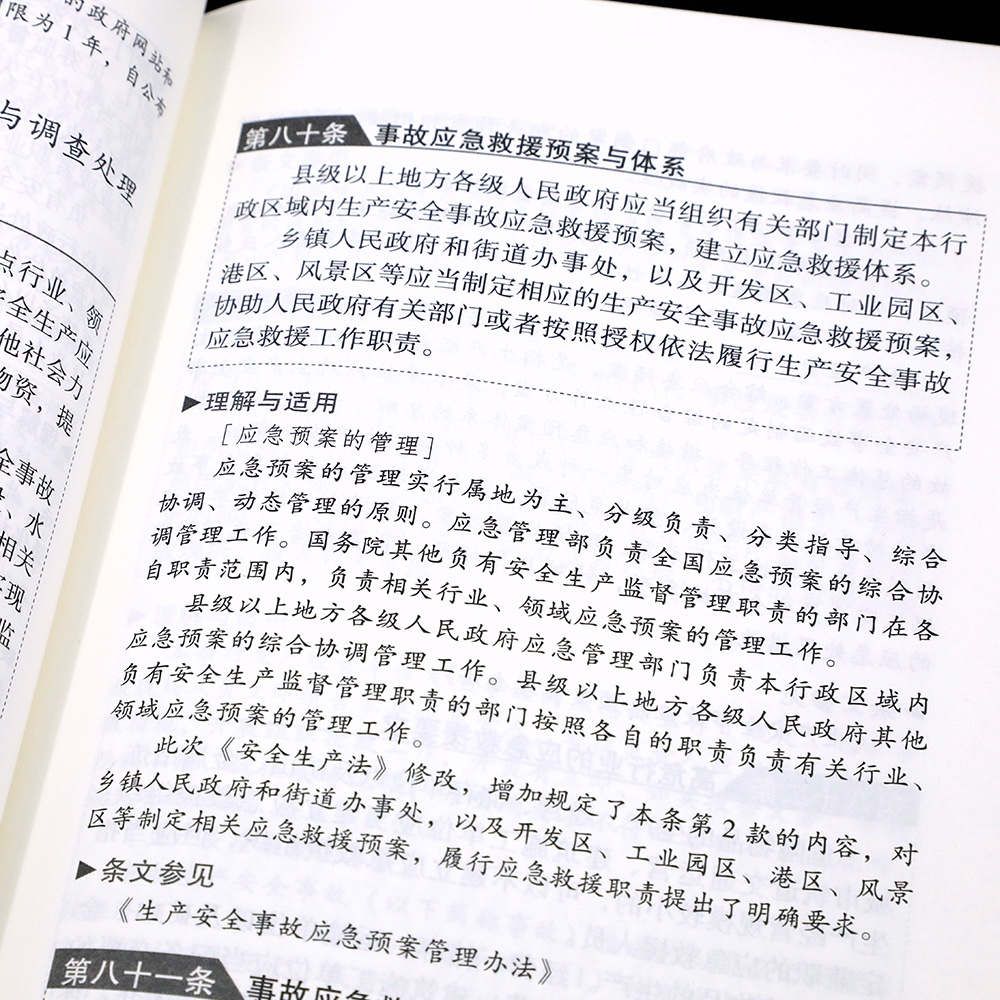 的政府网站和
限为1年，自公布
与调查处理
点行业、领
全生产应
他社会力
物资，提
全事故
、水
相关
现
监
第八十条 事故应急救援预案与体系
县级以上地方各级人民政府应当组织有关部门制定本行
政区域内生产安全事故应急救援预案，建立应急救援体系。
乡镇人民政府和街道办事处，以及开发区、工业园区、
港区、风景区等应当制定相应的生产安全事故应急救援预案，
协助人民政府有关部门或者按照授权依法履行生产安全事故
应急救援工作职责。
▶理解与适用
［应急预案的管理］
应急预案的管理实行属地为主、分级负责、分类指导、综合
协调、动态管理的原则。应急管理部负责全国应急预案的综合协
调管理工作。国务院其他负有安全生产监督管理职责的部门在各
自职责范围内，负责相关行业、领域应急预案的管理工作。
县级以上地方各级人民政府应急管理部门负责本行政区域内
应急预案的综合协调管理工作。县级以上地方各级人民政府其他
负有安全生产监督管理职责的部门按照各自的职责负责有关行业、
领域应急预案的管理工作。
此次《安全生产法》修改，增加规定了本条第2款的内容，对
乡镇人民政府和街道办事处，以及开发区、工业园区、港区、风景
区等制定相关应急救援预案，履行应急救援职责提出了明确要求。
▶条文参见
《生产安全事故应急预案管理办法》
第八十一条 事故应急救